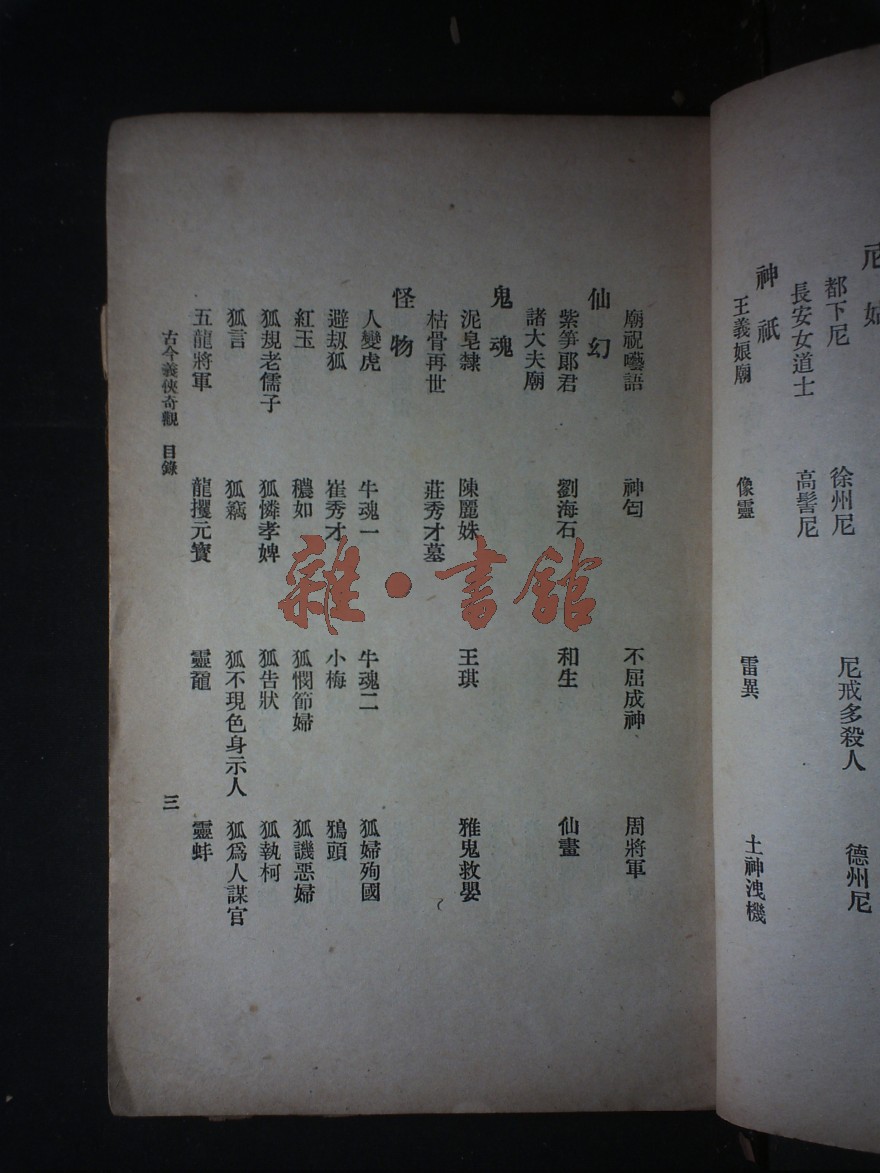 尼姑
都下尼 徐州尼 尼戒多殺人 德州尼
長安女道士 高髻尼
神祇
王義娘廟 像靈 雷異 土神洩機
廟祝囈語 神匄 不屈成神 周將軍
仙幻
紫筍郎君 劉海石 和生 仙畫
諸大夫廟
鬼魂
泥皂隸 陳麗姝 王琪 雅鬼救嬰
枯骨再世 莊秀才墓
怪物
人變虎 牛魂一 牛魂二 狐婦殉國
避刼狐 崔秀才 小梅 鴉頭
紅玉 穠如 狐憫節婦 狐譏惡婦
狐規老儒子 狐憐孝婢 狐告狀 狐執柯
狐言 狐竊 狐不現色身示人 狐爲人謀官
五龍將軍 龍攫元寶 靈鼉 靈蚌
古今義俠奇觀 目錄 三
雜·書館